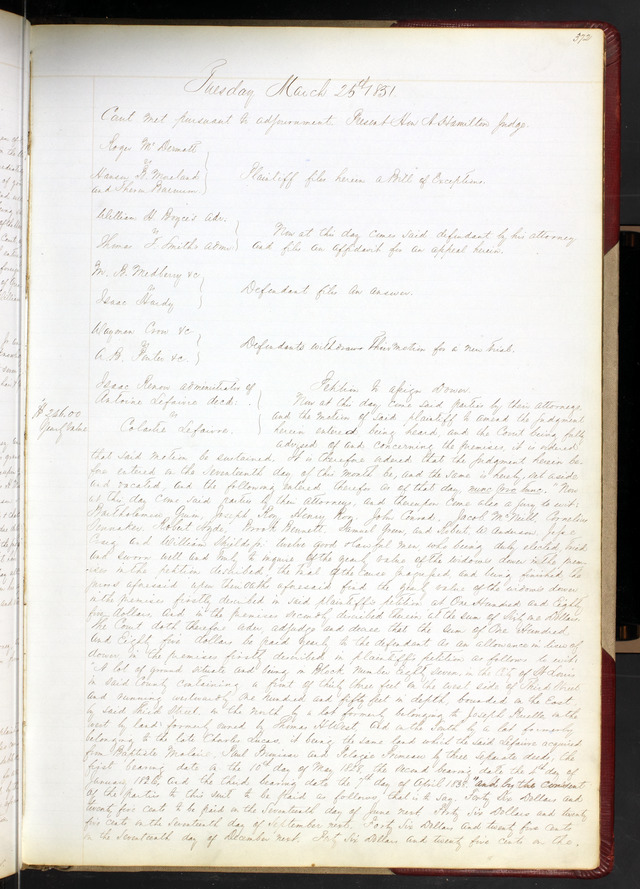 372
Tuesday March 25th 1851
Court met pursuant to adjournment Present Hon A Hamilton Judge.
Roger McDermott
vs
and
Plaintiff files herein a Bill of Exceptions.
William H. Bryce's Adr.
vs
Thomas F. Smith's Admr
Now at this day comes said defendant by his attorney
and files an Affidavit for an appeal herein.
M. H. Medberry &c
vs
Isaac Hardy
Defendant files an answer.
Wayman Crow &c
vs
A. B. &c.
Defendants withdraws their motion for a new trial.
Isaac administrator of
Antoine Lefaivre decd.
vs
Colastie Lefaivre.
$246.00
Yearly Value
Petition to assign dower.
Now at this day come said parties by their attorneys
and the motion of said plaintiff to amend the judgment
herein entered being heard, and the Court being fully
advised of and concerning the premises, it is ordered
that said motion be sustained. It is therefore ordered that the judgment herein be-
fore entered on the Seventeenth day of this month be, and the same is hereby, set aside
and vacated, and the following entered therefor as of that day, nunc pro tunc. Now
at this day come said parties by their attorneys, and thereupon come also a jury to wit:
Bartholomew Joseph Henry John Conrad, Jacob McNeill, Cornelius
Robert Hyde, Bennett, Samuel Green, and Robert W. Anderson,
Craig and William twelve good & lawful men who being duly elected, tried
and sworn well and truly to inquire of the yearly value of the widows dower in the prem-
ises in the petition described, the trial of the cause progressed, and being finished, the
jurors aforesaid upon their oath aforesaid find the yearly value of the widows dower
in the premises firstly described in said plaintiffs petition at One Hundred and Eighty
five dollars and in the premises secondly described therein at the sum of Sixty one dollars
The Court doth therefore order adjudge and decree that the sum of One Hundred
and Eighty five dollars be paid yearly to the defendant as an allowance in lieu of
dower in the premises firstly described in plaintiffs petition as follows to wit:
"A lot of ground situate and being in Block number Eighty seven, in the City of St Louis
in said County containing a front of thirty three feet on the west side of Third Street
and running westwardly one hundred and fifty feet in depth, bounded on the East
by said Third Street, on the North by a lot formerly belonging to Joseph on the
west by land formerly owned by Thomas and on the South by a lot formerly
belonging to the late Charles Lucas, it being the same land which the said Lefaivre acquired
from Baptiste Paul and Pelagie by three separate deeds, the
first bearing date on the 10th day of May 1828, the second bearing date the 6th day of
January 1836, and the third bearing date the 7th day of April 1838, "and by the consent
of the parties to this suit to be paid as follows, that is to say. Forty Six Dollars and
twenty five cents to be paid on the Seventeenth day of June next. Forty Six Dollars and twenty
five cents on the Seventeenth day of September next. Forty Six Dollars and twenty five cents
on the Seventeenth day of December next. Forty Six Dollars and twenty five cents on the